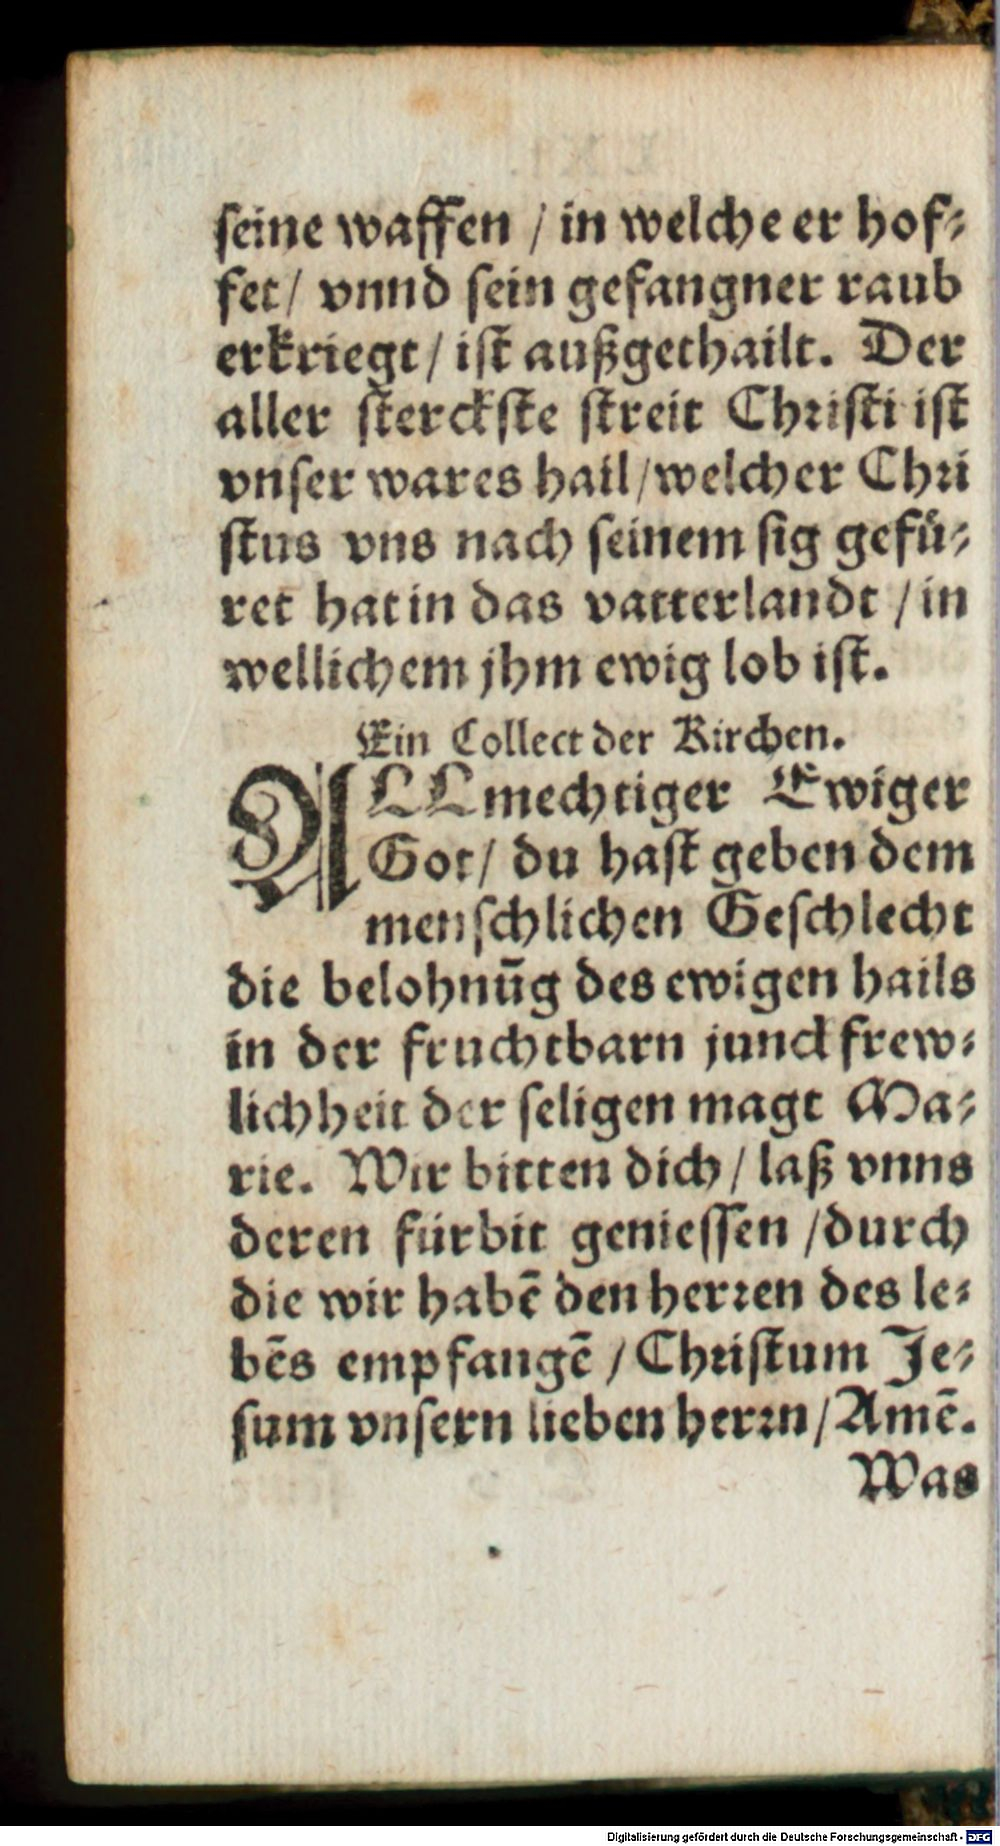 seine waffen / in welche er hof⸗
fet / vnnd sein gefangner raub
erkriegt / ist außgethailt. Der
aller sterckste streit Christi ist
vnser wares hail / welcher Chri
stus vns nach seinem sig gefü⸗
ret hat in das vatterlandt / in
wellichem jhm ewig lob ist.
Ein Collect der Kirchen.
ALLmechtiger Ewiger
Got / du hast geben dem
menschlichen Geschlecht
die belohnūg des ewigen hails
in der fruchtbarn junckfrew⸗
lichheit der seligen magt Ma⸗
rie. Wir bitten dich / laß vnns
deren fürbit geniessen / durch
die wir habē den herren des le⸗
bēs empfangē / Christum Je⸗
sum vnsern lieben herrn / Amē.
Was
Digitalisierung gefördert durch die Deutsche Forschungsgemeinschaft - DFG